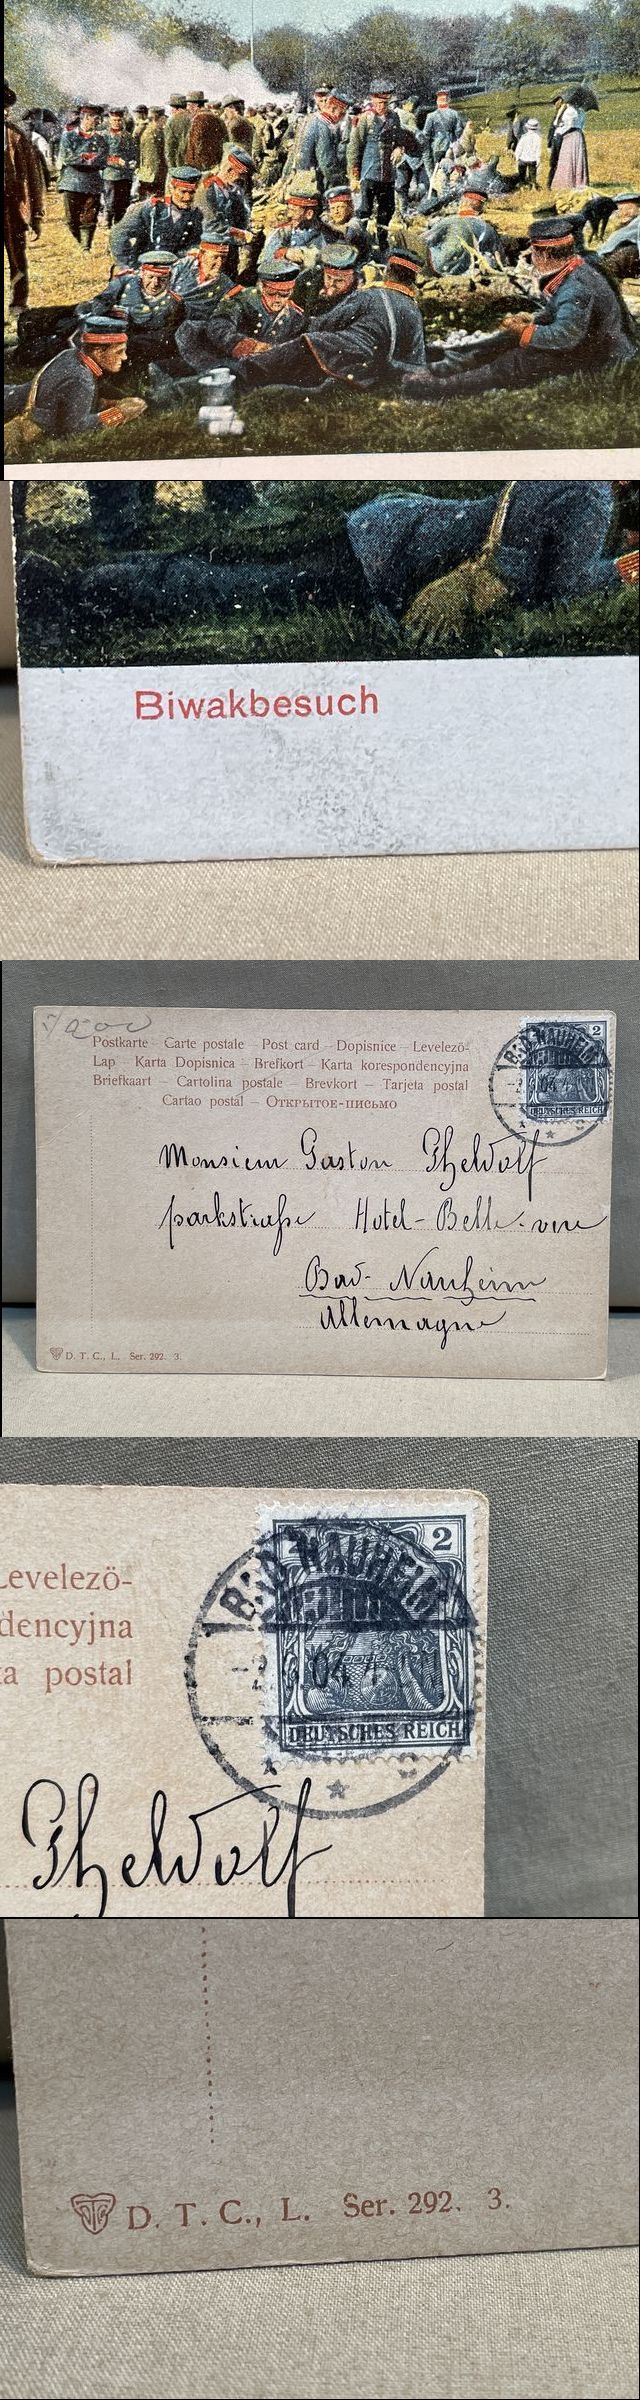 Biwakbesuch
Postkarte – Carte postale – Post card – Dopisnice – Levelezö-
Lap – Karta Dopisnica – Brefkort – Karta korespondencyjna
Briefkaart – Cartolina postale – Brevkort – Tarjeta postal
Cartao postal – Открытое-письмо
2
BAD NAUHEIM
04
DEUTSCHES REICH
Monsieur Gaston Gheldolf
parkstraße Hotel-Belle-vue
Bad-Nauheim
Allemagne
D. T. C., L. Ser. 292. 3.
Levelezö-
dencyjna
ta postal
2
BAD NAUHEIM
04
DEUTSCHES REICH
Gheldolf
D. T. C., L. Ser. 292. 3.